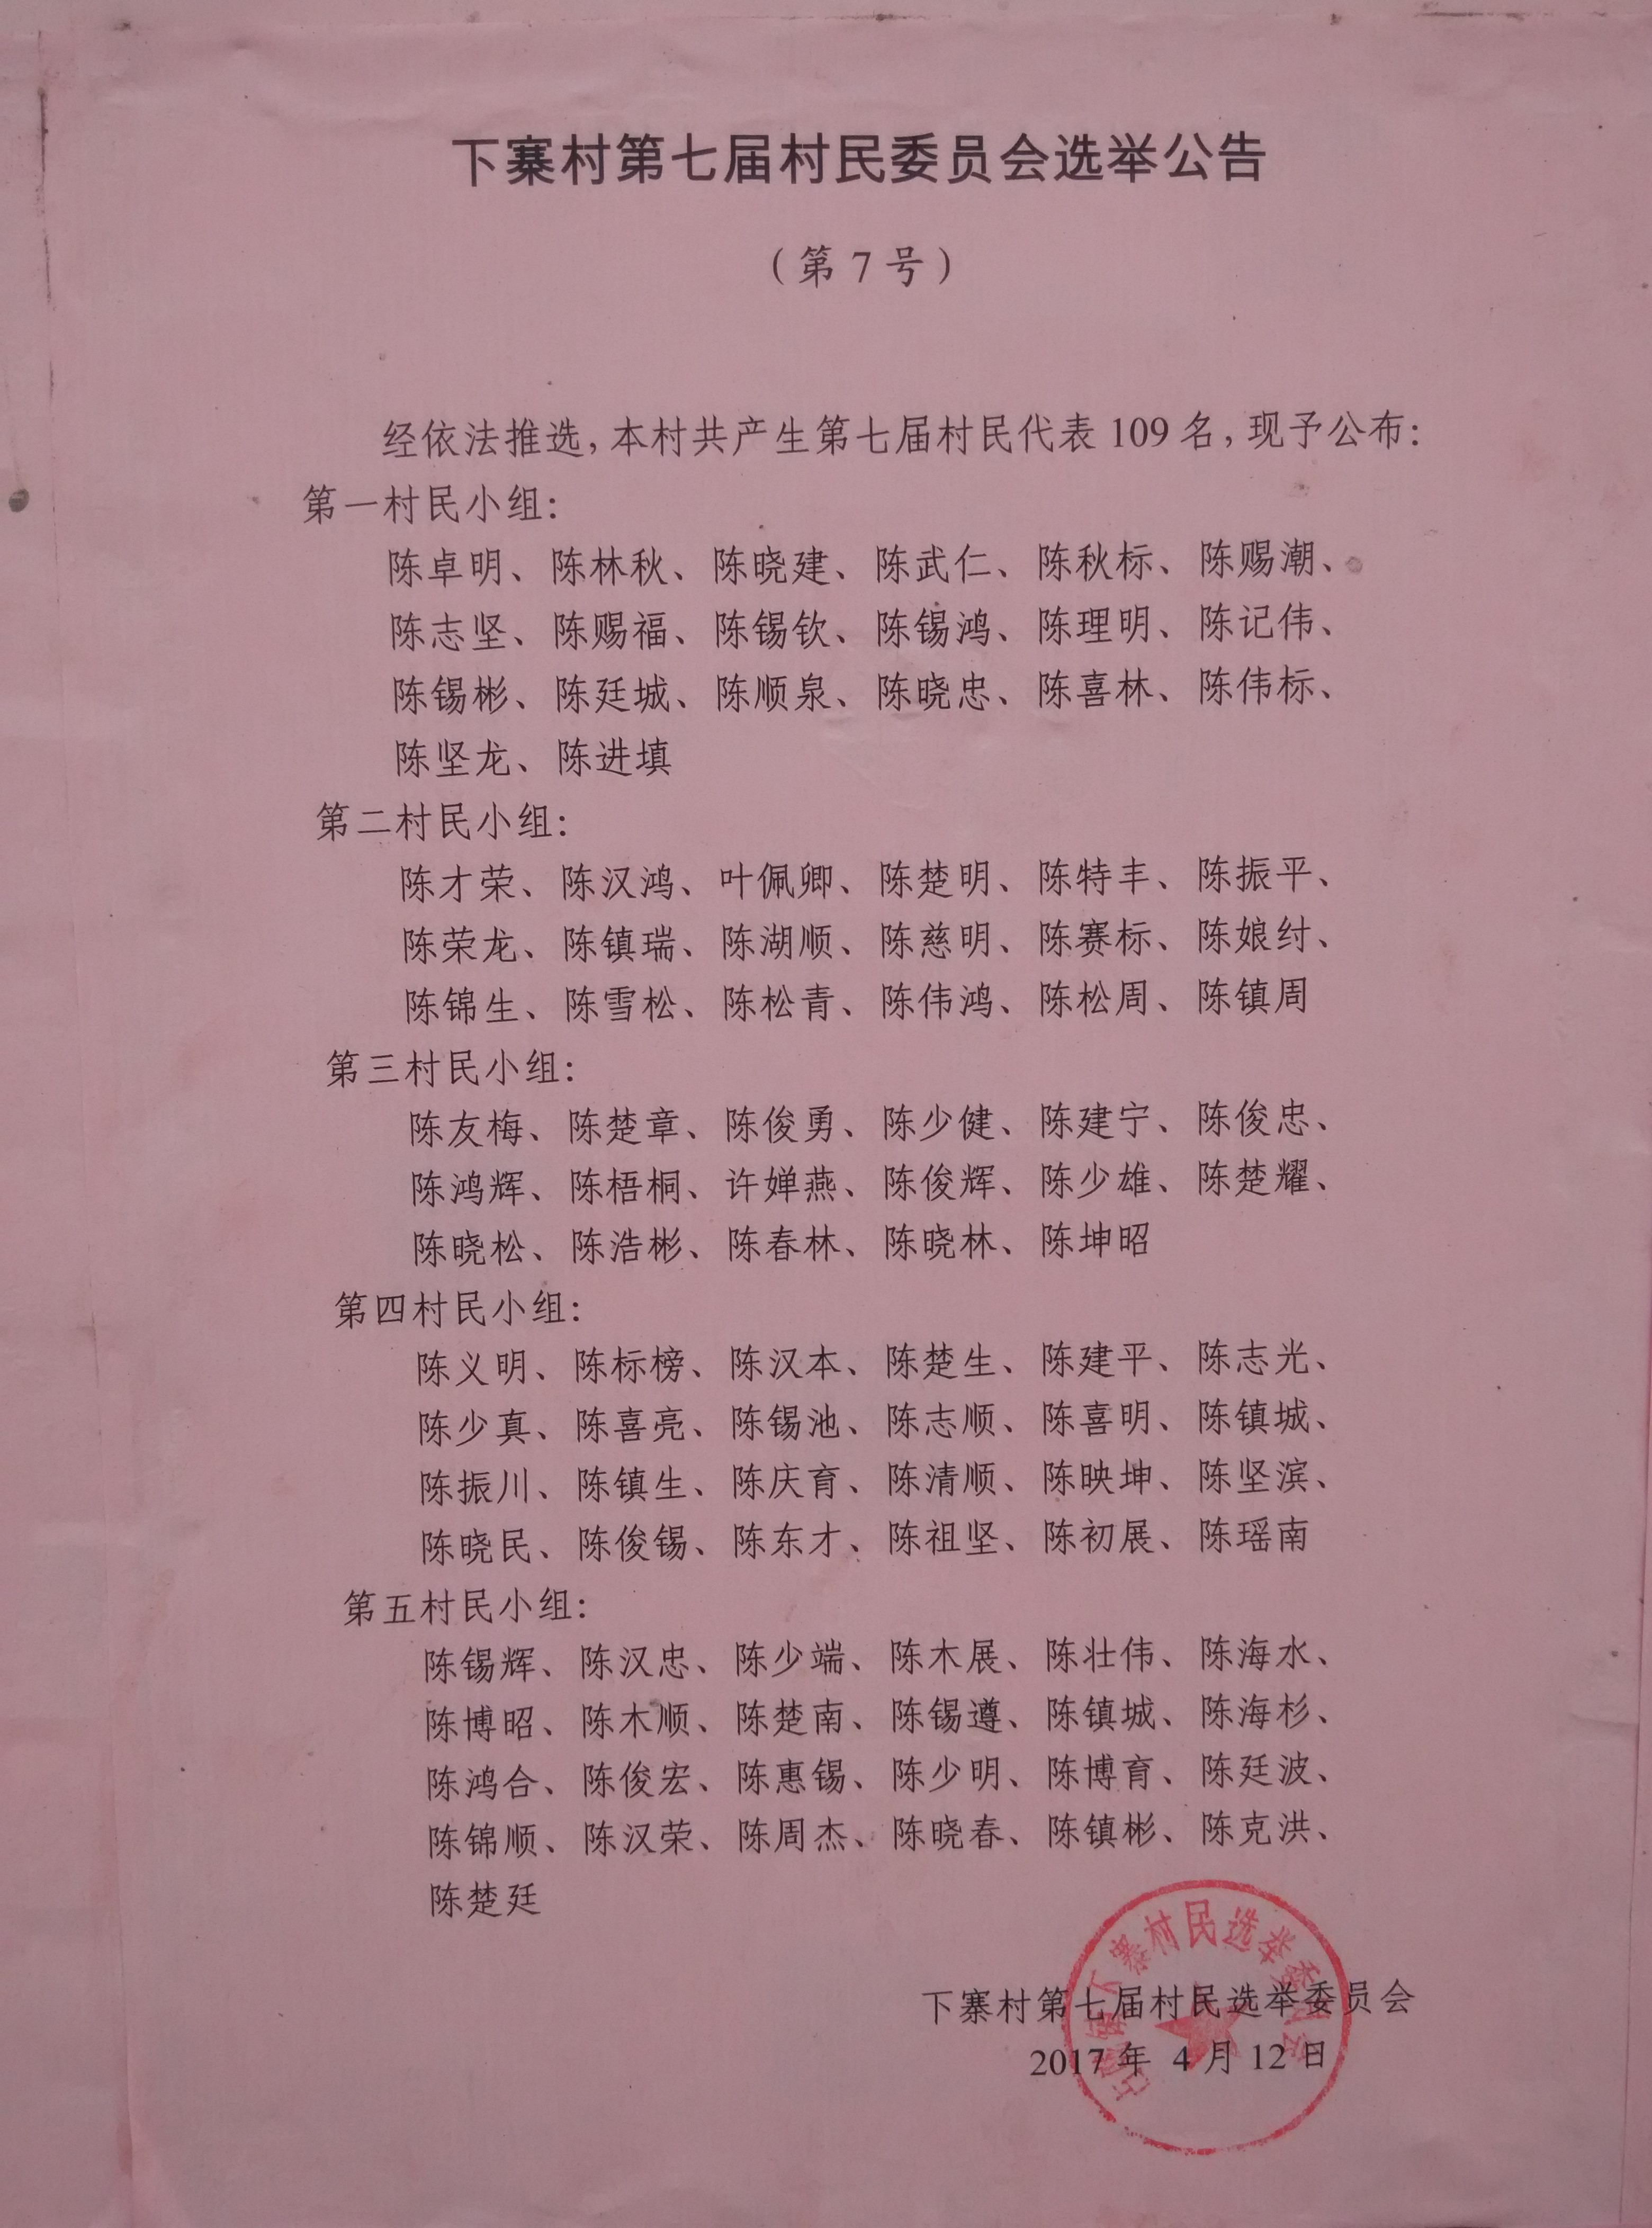 下寨村第七届村民委员会选举公告
（第 7 号）
经依法推选，本村共产生第七届村民代表 109 名，现予公布：
第一村民小组：
陈卓明、陈林秋、陈晓建、陈武仁、陈秋标、陈赐潮、
陈志坚、陈赐福、陈锡钦、陈锡鸿、陈理明、陈记伟、
陈锡彬、陈廷城、陈顺泉、陈晓忠、陈喜林、陈伟标、
陈坚龙、陈进填
第二村民小组：
陈才荣、陈汉鸿、叶佩卿、陈楚明、陈特丰、陈振平、
陈荣龙、陈镇瑞、陈湖顺、陈慈明、陈赛标、陈娘纣、
陈锦生、陈雪松、陈松青、陈伟鸿、陈松周、陈镇周
第三村民小组：
陈友梅、陈楚章、陈俊勇、陈少健、陈建宁、陈俊忠、
陈鸿辉、陈梧桐、许婵燕、陈俊辉、陈少雄、陈楚耀、
陈晓松、陈浩彬、陈春林、陈晓林、陈坤昭
第四村民小组：
陈义明、陈标榜、陈汉本、陈楚生、陈建平、陈志光、
陈少真、陈喜亮、陈锡池、陈志顺、陈喜明、陈镇城、
陈振川、陈镇生、陈庆育、陈清顺、陈映坤、陈坚滨、
陈晓民、陈俊锡、陈东才、陈祖坚、陈初展、陈瑶南
第五村民小组：
陈锡辉、陈汉忠、陈少端、陈木展、陈壮伟、陈海水、
陈博昭、陈木顺、陈楚南、陈锡遵、陈镇城、陈海杉、
陈鸿合、陈俊宏、陈惠锡、陈少明、陈博育、陈廷波、
陈锦顺、陈汉荣、陈周杰、陈晓春、陈镇彬、陈克洪、
陈楚廷
下寨村第七届村民选举委员会
2017 年 4 月 12 日
下寨村民选举委员会